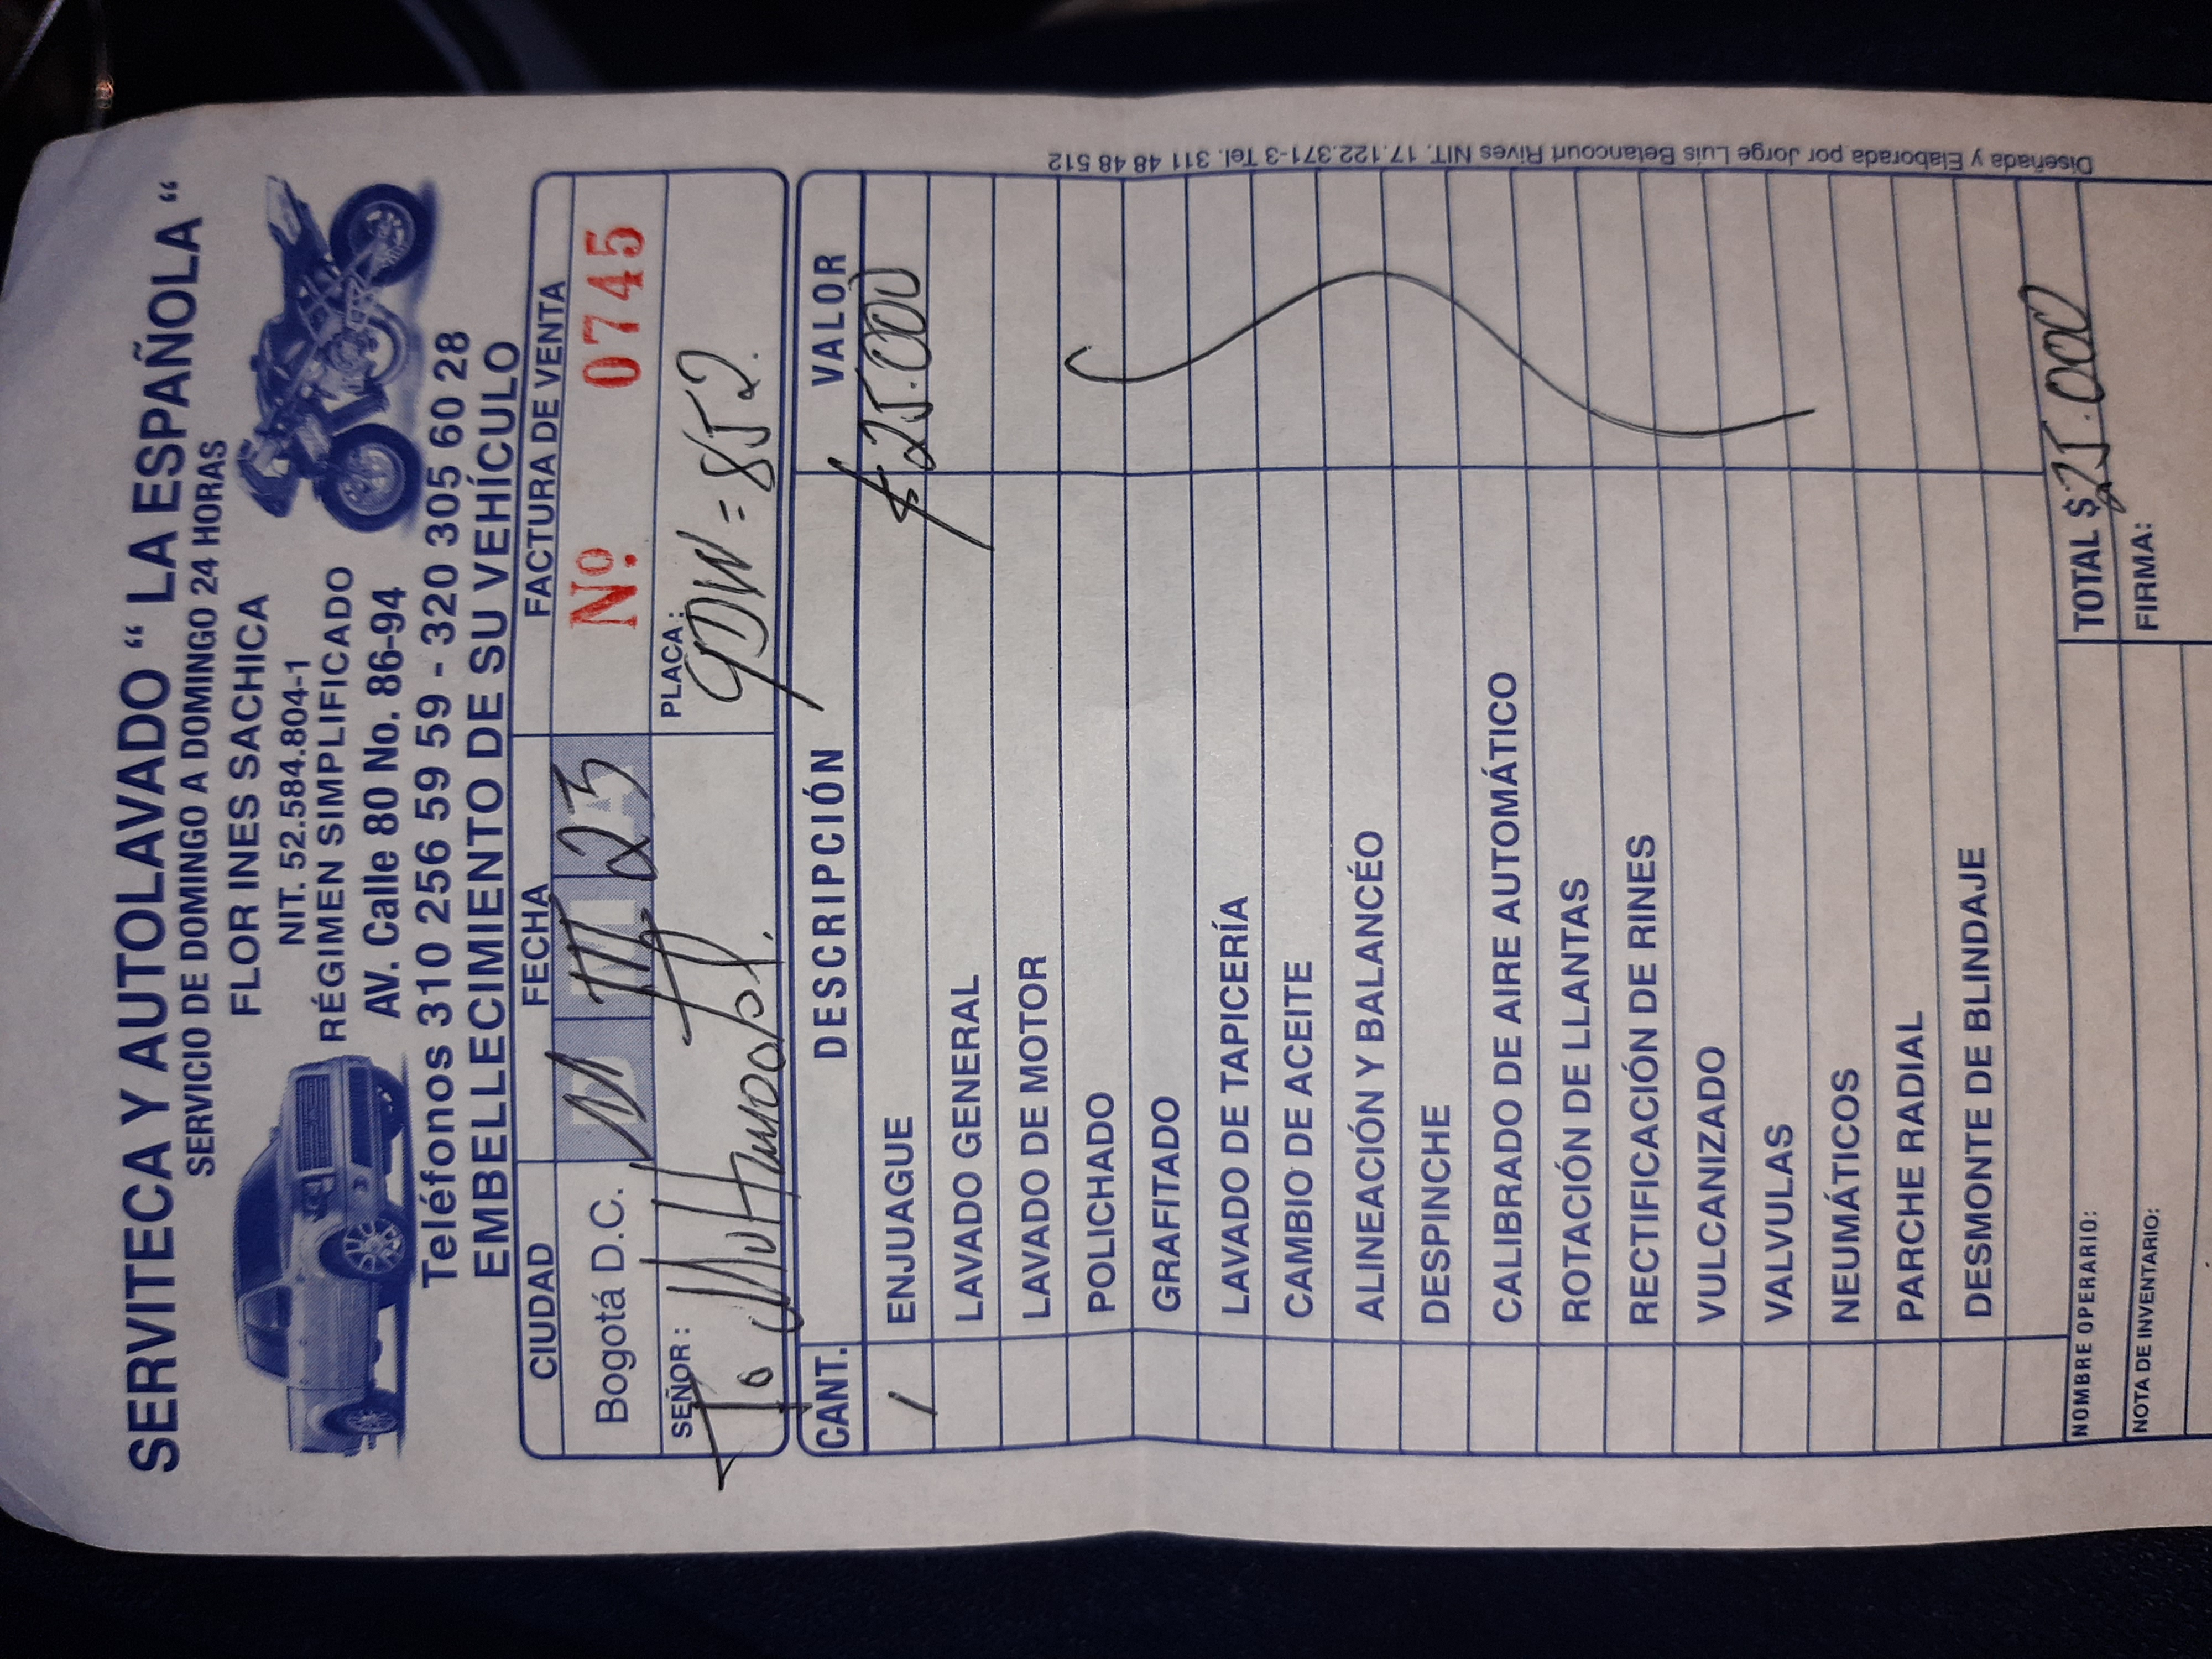 SERVITECA Y AUTOLAVADO “ LA ESPAÑOLA “
SERVICIO DE DOMINGO A DOMINGO 24 HORAS
FLOR INES SACHICA
NIT. 52.584.804-1
RÉGIMEN SIMPLIFICADO
AV. Calle 80 No. 86-94
Teléfonos 310 256 59 59 - 320 305 60 28
EMBELLECIMIENTO DE SU VEHÍCULO
CIUDAD FECHA FACTURA DE VENTA
Bogotá D.C. III 23 No. 0745
SEÑOR: PLACA:
GDW = 852.
CANT. DESCRIPCIÓN VALOR
1 ENJUAGUE $25.000
LAVADO GENERAL
LAVADO DE MOTOR
POLICHADO
GRAFITADO
LAVADO DE TAPICERÍA
CAMBIO DE ACEITE
ALINEACIÓN Y BALANCÉO
DESPINCHE
CALIBRADO DE AIRE AUTOMÁTICO
ROTACIÓN DE LLANTAS
RECTIFICACIÓN DE RINES
VULCANIZADO
VALVULAS
NEUMÁTICOS
PARCHE RADIAL
DESMONTE DE BLINDAJE
NOMBRE OPERARIO: TOTAL $ 25.000
NOTA DE INVENTARIO: FIRMA:
Diseñada y Elaborada por Jorge Luis Betancourt Rives NIT. 17.122.371-3 Tel. 311 48 48 512